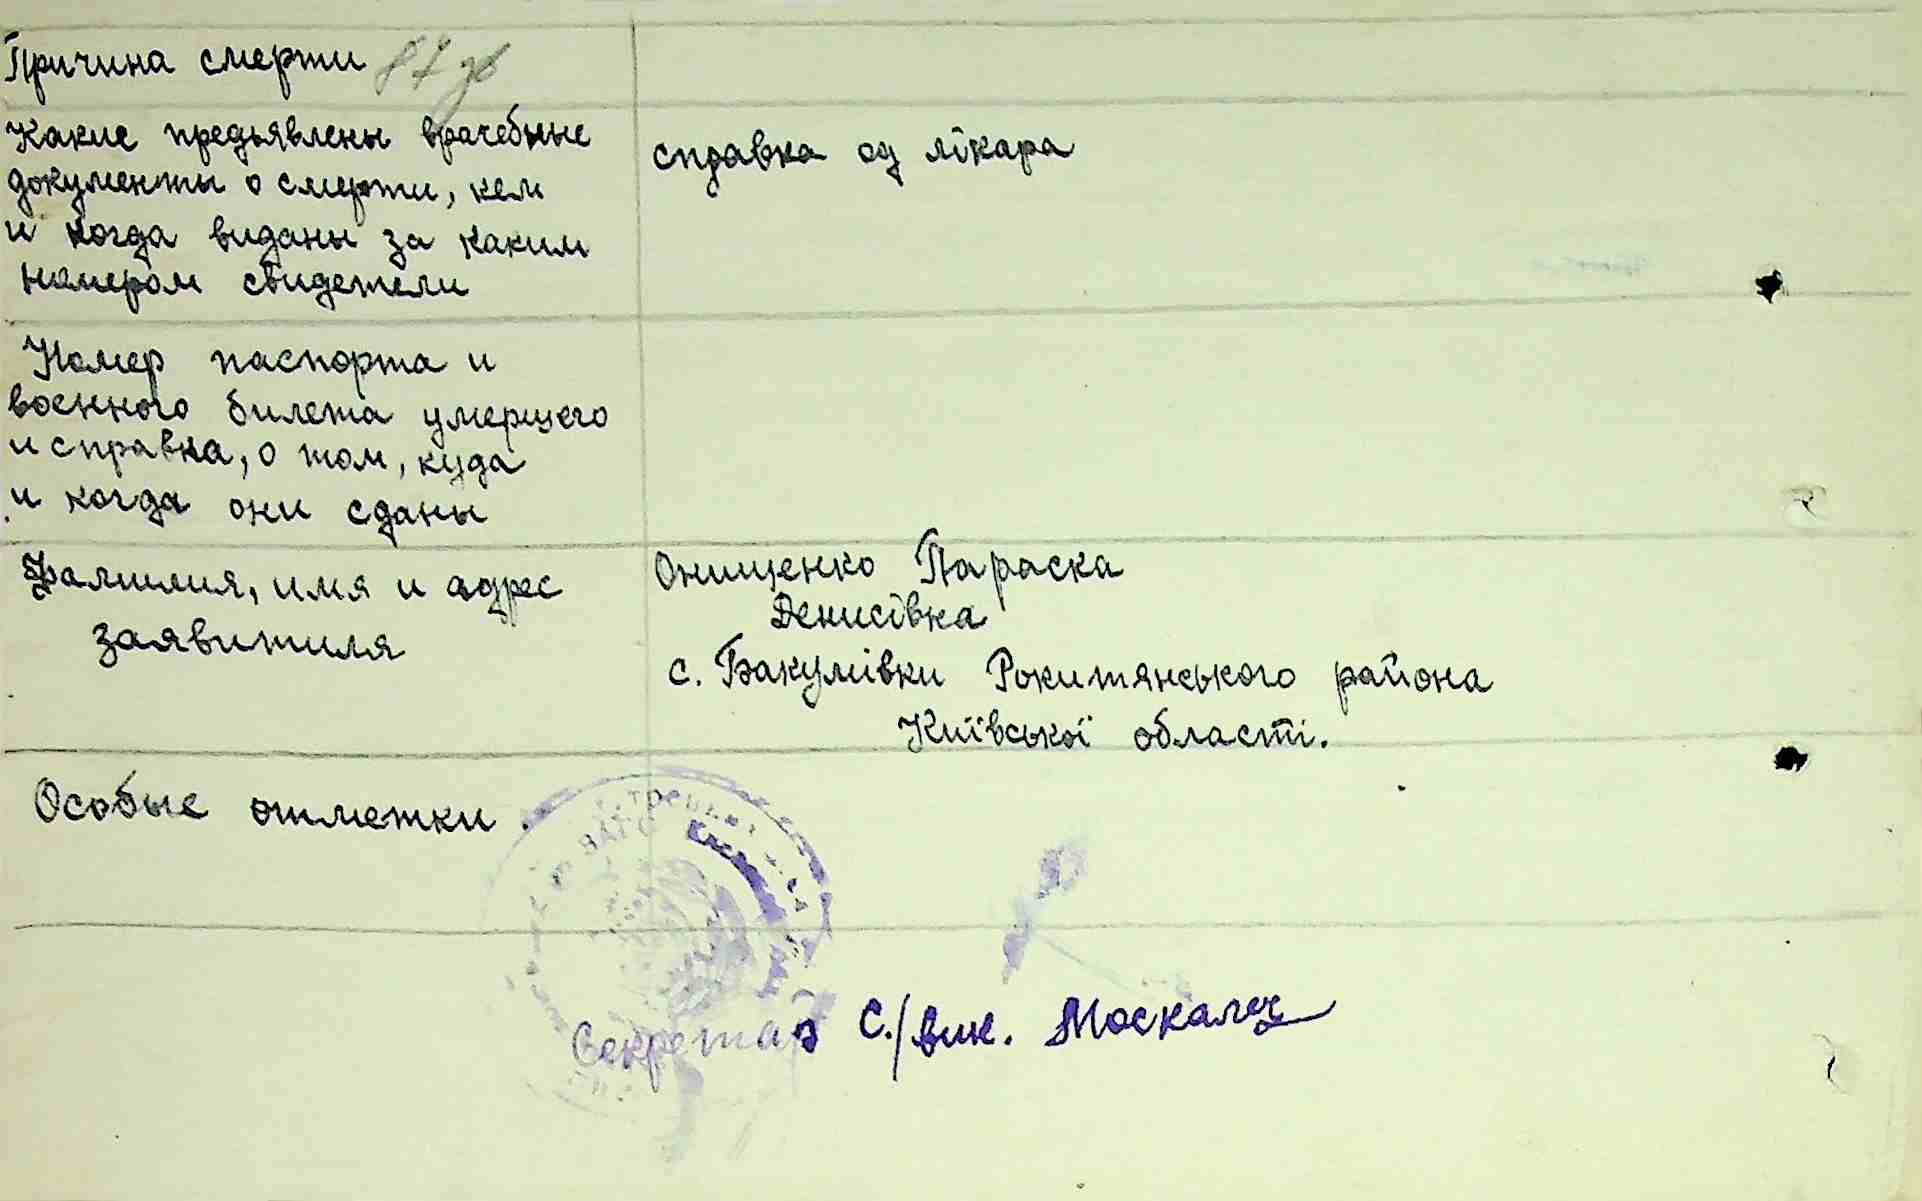 Причина смерти 87
Какие предьявлены врачебные
документы о смерти, кем
и когда виданы за каким
номером свидетели
справка од лікара
Номер паспорта и
военного билета умершего
и справка, о том, куда
и когда они сданы
Фамилия, имя и адрес
заявитиля
Онищенко Параска
Денисівка
с. Бакумівки Рокитянського района
Київської області.
Особые отметки.
ЗАГС
Секретар С./вик. Москалец